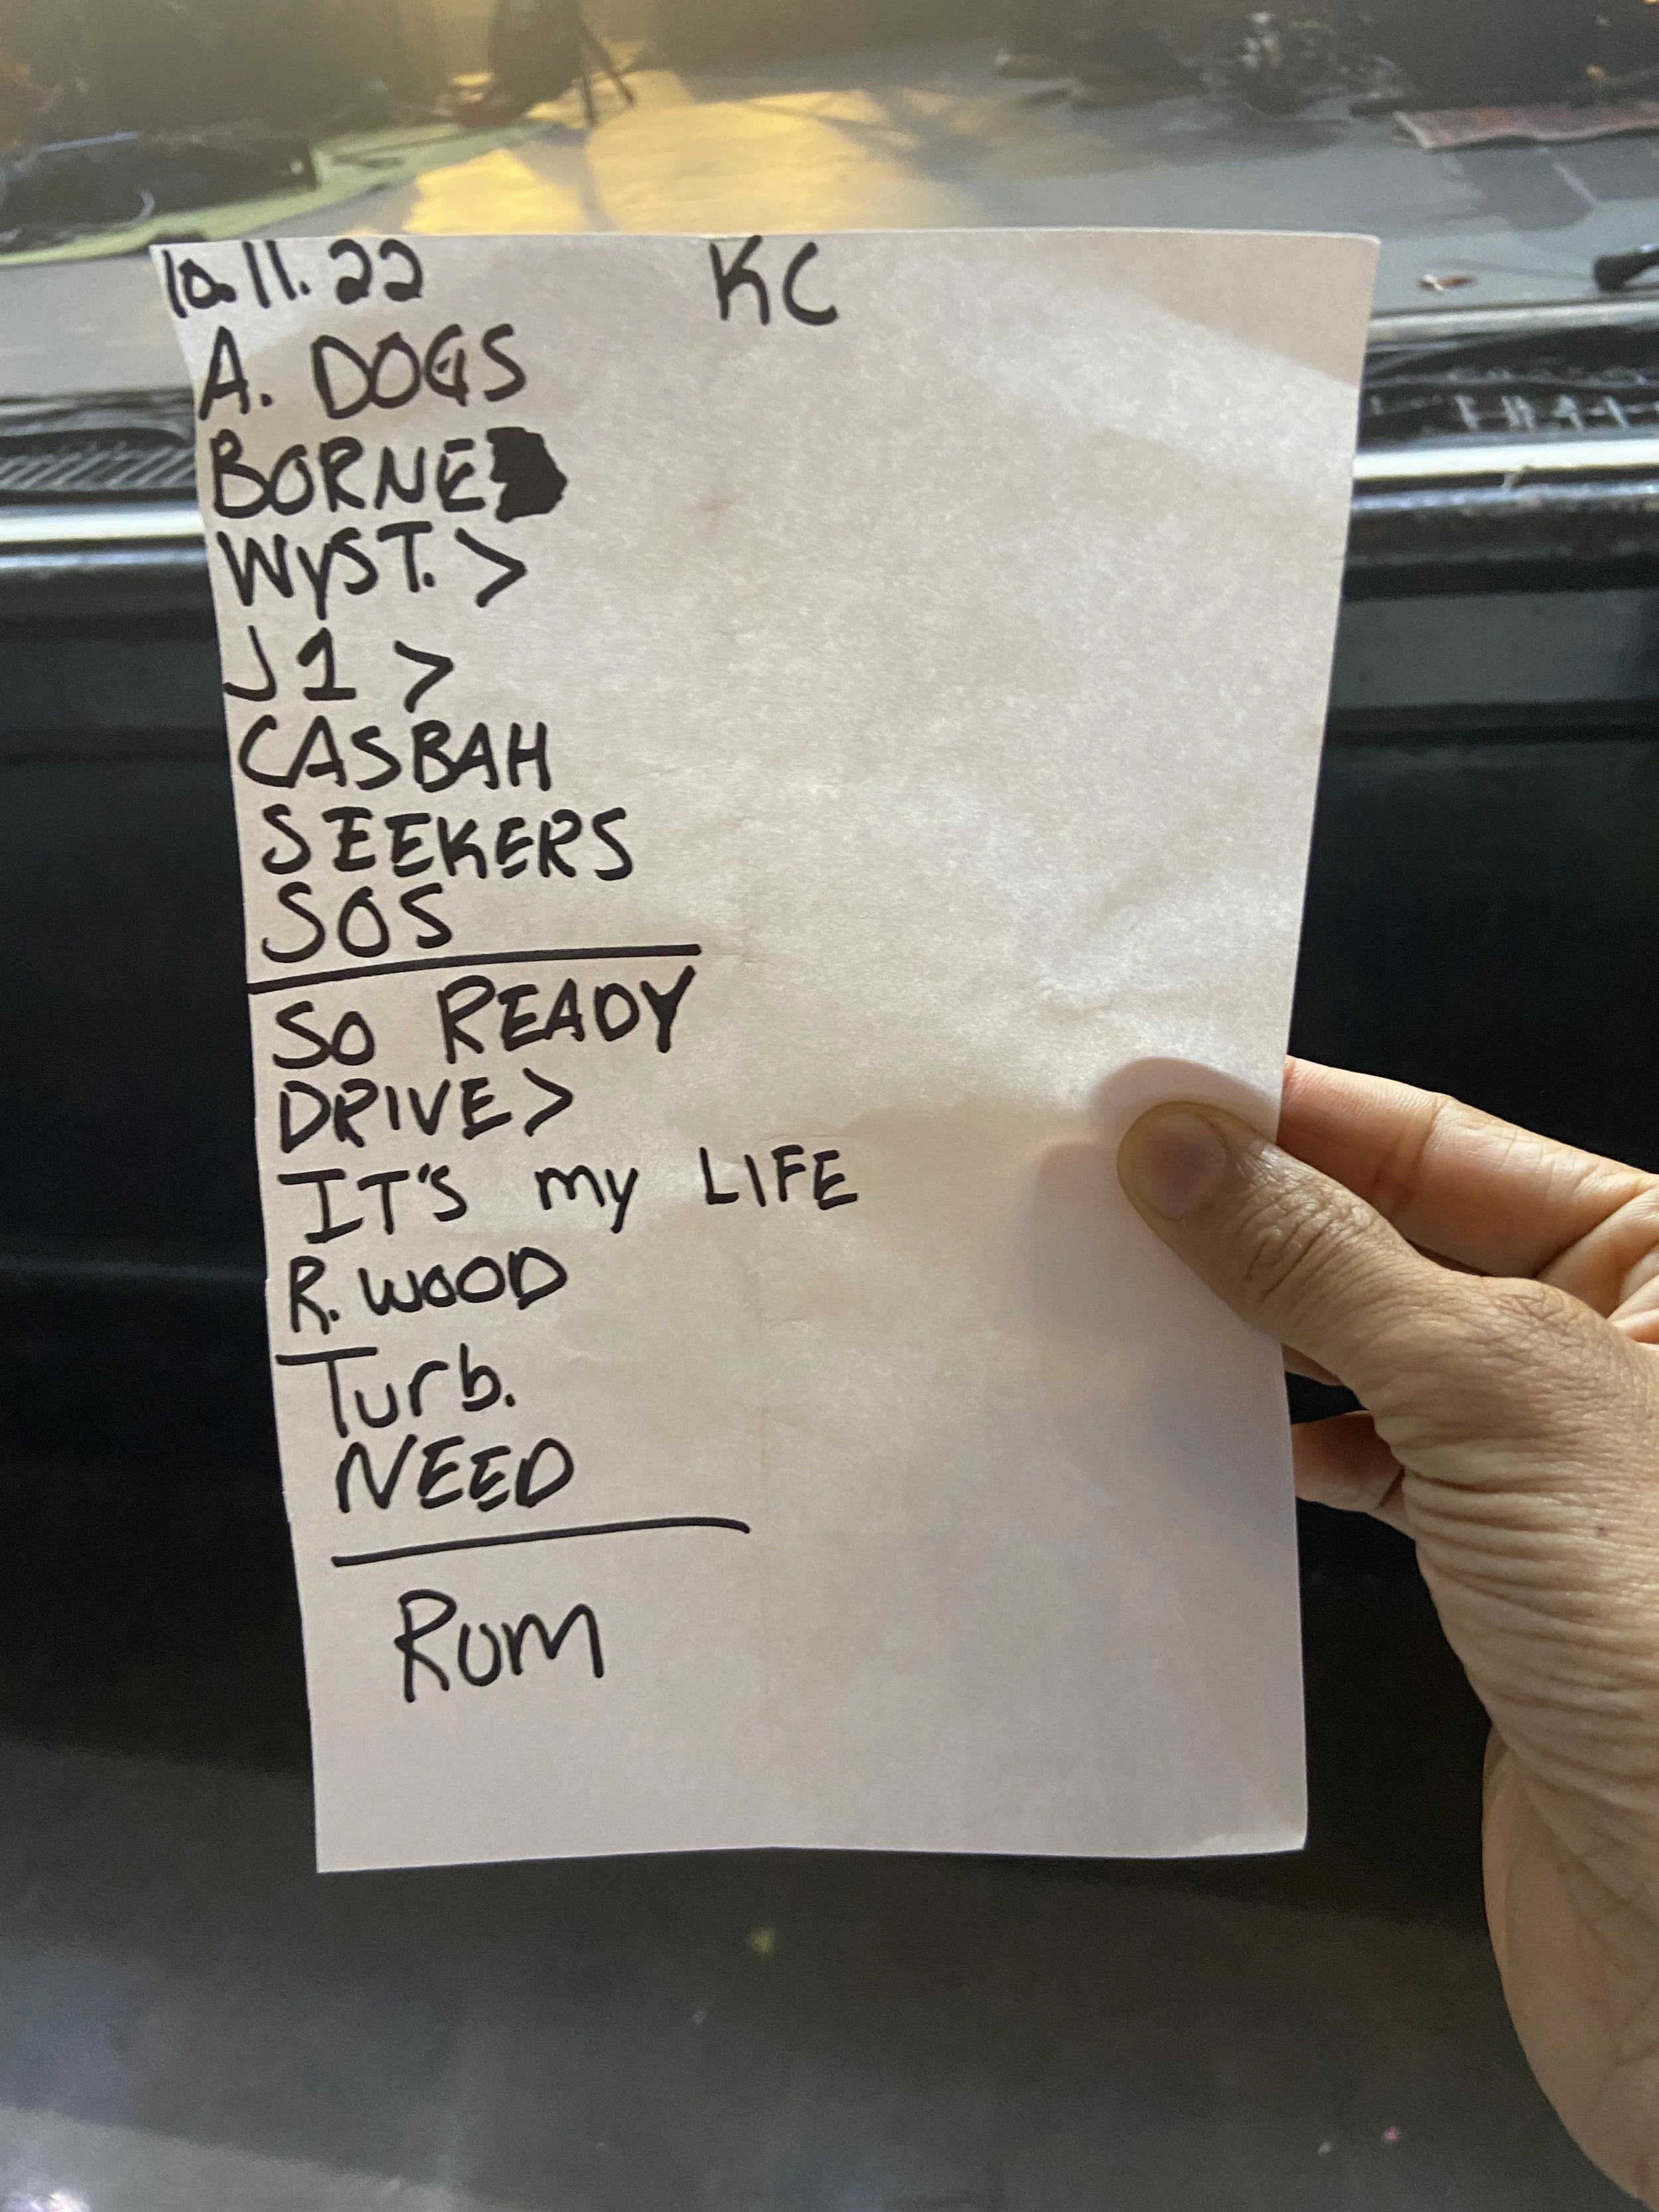 10.11.22 KC
A. DOGS
BORNE
WYST. >
J1 >
CASBAH
SEEKERS
SOS
SO READY
DRIVE>
IT'S my LIFE
R. WOOD
Turb.
NEED
Rum